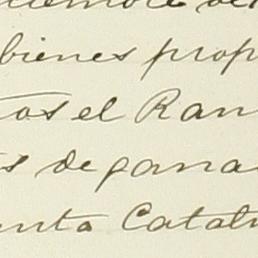 bienes prop
tos el Ran
s de gana
anta Catali